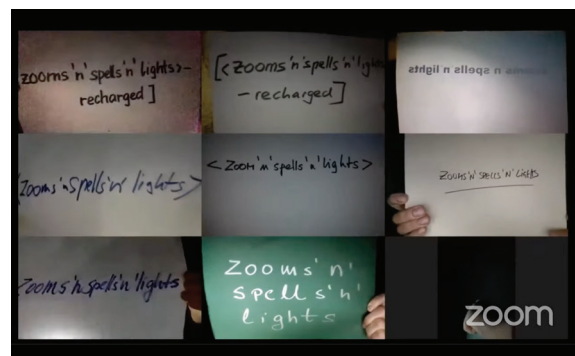 zooms'n'spells'n'lights>-
recharged]
[<zooms'n'spells'n'lights
-recharged]
zooms n spells n lights
zooms'n'spells'n'lights>
<Zoom'n'spells'n'lights>
ZOOMS'N'SPELLS'N'LIGHTS
Zooms'n'spells'n'lights
Zooms'n'
spells'n'
lights
zoom